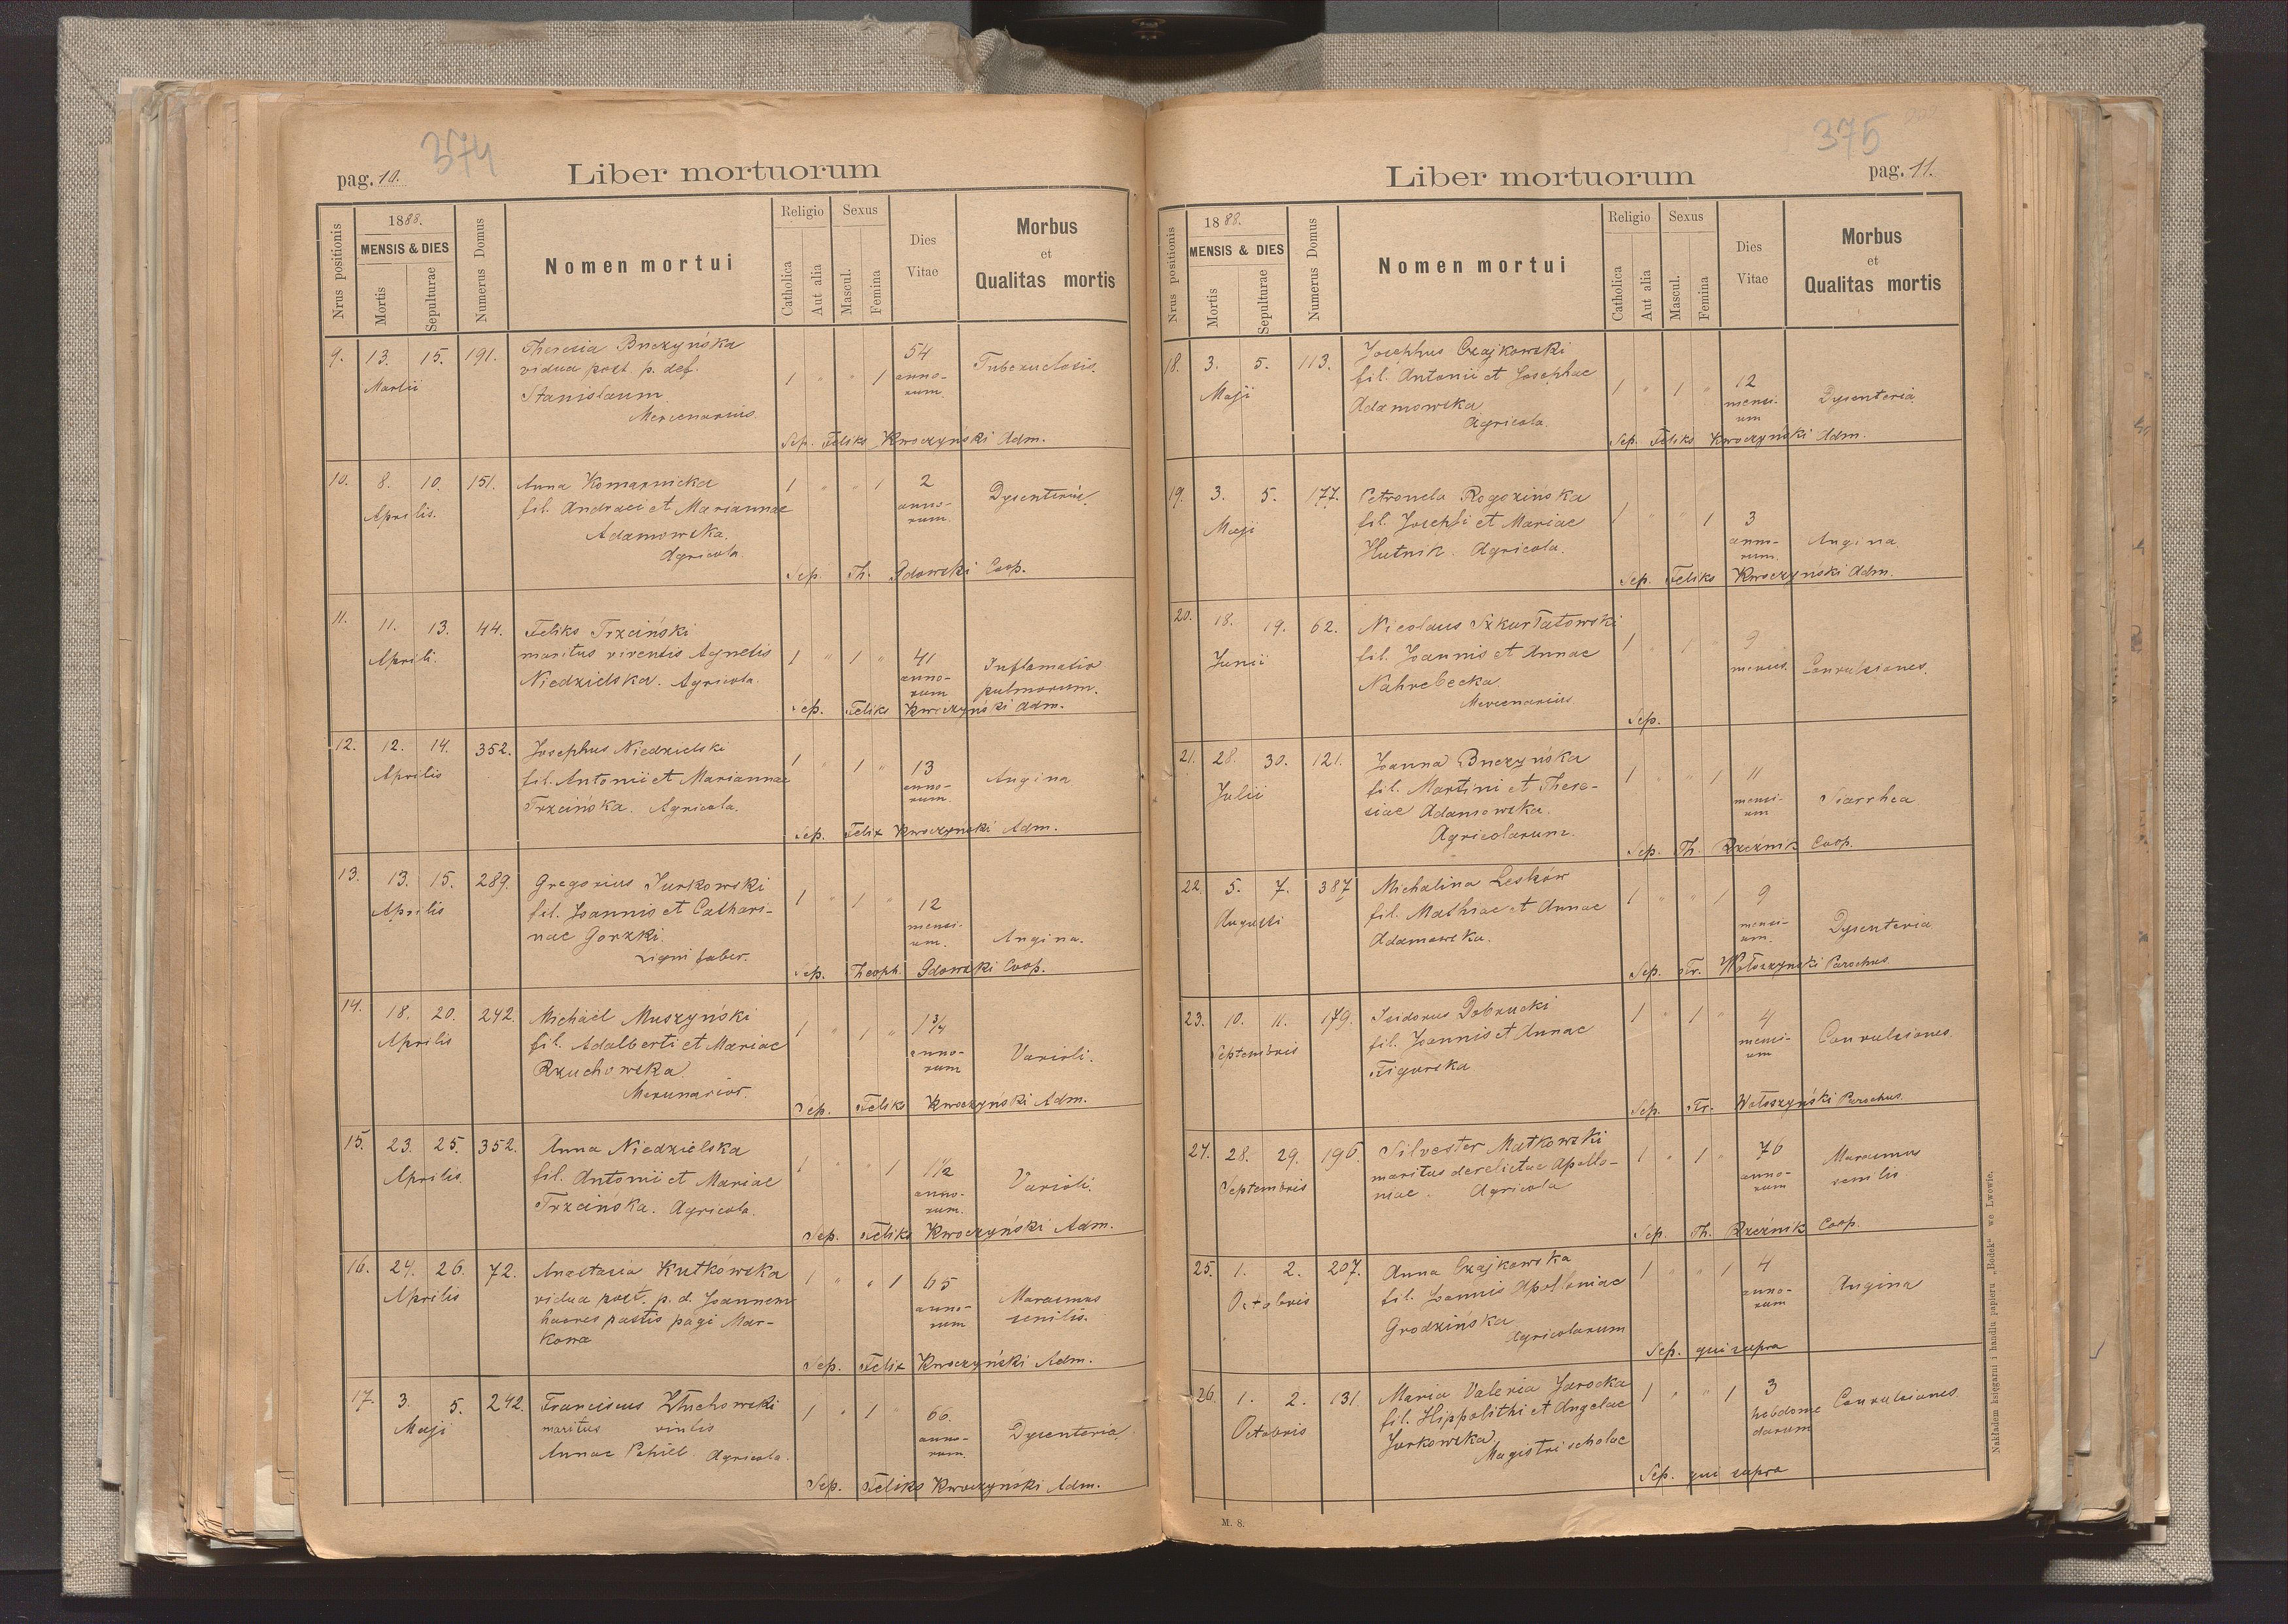 374
pag. 10.
Liber mortuorum
Nrus positionis
1888.
MENSIS & DIES
Mortis
Sepulturae
Numerus Domus
Nomen mortui
Religio
Catholica
Aut alia
Sexus
Mascul.
Femina
Dies
Vitae
Morbus
et
Qualitas mortis
9. 13. 15. 191. Theresia Buczyńska 54
Martii vidua post p. def. 1 " " 1 anno- Tuberculosis.
Stanislaum rum
Mercenarius
Sep. Feliks Kwoczyński Adm.
10. 8. 10. 151. Anna Komarnicka 1 " " 1 2
Aprilis. fil. Andraei et Mariannae anno- Dysenteria
Adamowska. rum.
Agricola.
Sep. Th. Gdowski Coop.
11. 11. 13. 44. Feliks Trzciński
Aprili. maritus viventis Agnetis 1 " 1 " 41 Inflamatio
Niedzielska. Agricola. anno- pulmorum.
rum
Sep. Feliks Kwoczyński Adm.
12. 12. 14. 352. Josephus Niedzielski
Aprilis fil. Antonii et Mariannae 1 " 1 " 13 Angina
Trzcińska. Agricola. anno-
rum.
Sep. Felix Kwoczyński Adm.
13. 13. 15. 289. Gregorius Jurkowski
Aprilis fil. Joannis et Cathari- 1 " 1 " 12
nae Gorzki. mensi-
Ligni faber. um. Angina.
Sep. Theoph. Gdowski Coop.
14. 18. 20. 242. Michaël Muszyński
Aprilis fil. Adalberti et Mariae 1 " 1 " 1 3/4
Rzuchowska anno- Varioli.
rum
Sep. Feliks Kwoczyński Adm.
15. 23. 25. 352. Anna Niedzielska
Aprilis. fil. Antonii et Mariae 1 " " 1 1 1/2 Varioli.
Trzcińska. Agricola. anno-
rum.
Sep. Feliks Kwoczyński Adm.
16. 24. 26. 72. Anastasia Kutkowska
Aprilis vidua post. p. d. Joannem 1 " " 1 65 Marasmus
haeres pastis pagi Mar- anno- senilis.
kowa rum
Sep. Felix Kwoczyński Adm.
17. 3. 5. 242. Franciscus
Maji maritus 1 " 1 " 66. Dysenteria
Annae Agricola. anno-
rum.
Sep. Feliks Kwoczyński Adm.
375
Liber mortuorum
pag. 11.
Nrus positionis
1888.
MENSIS & DIES
Mortis
Sepulturae
Numerus Domus
Nomen mortui
Religio
Catholica
Aut alia
Sexus
Mascul.
Femina
Dies
Vitae
Morbus
et
Qualitas mortis
18. 3. 5. 113. Josephus Czajkowski
Maji fil. Antonii et Josephae 1 " 1 " 12
Adamowska mensi- Dysenteria
Agricola. um
Sep. Feliks Kwoczyński Adm.
19. 3. 5. 177. Petronela Rogozińska
Maji fil. Josephi et Mariae 1 " " 1 3
Hutnik. Agricola. anno- Angina.
rum.
Sep. Feliks Kwoczyński Adm.
20. 18. 19. 62. Nicolaus Szkurłatowski
Junii fil. Joannis et Annae 1 " 1 " 9
Nahrebecka. menses. Convulsiones.
Mercenarius.
Sep.
21. 28. 30. 121. Joanna Buczyńska
Julii fil. Martini et There- 1 " " 1 11
siae Adamowska. mensi- Diarrhea
Agricolarum. um
Sep. Th. Rzeźnik Coop.
22. 5. 7. 387 Michalina Leskow
Augusti fil. Mathiae et Annae 1 " " 1 9
Adamowska. mensi- Dysenteria
um.
Sep. Fr. Wołoszyński Parochus
23. 10. 11. 179. Isidorus Dobrucki
Septembris fil. Joannis et Annae 1 " 1 " 4
Figurska mensi- Convulsiones.
um
Sep. Fr. Wołoszyński Parochus.
24. 28. 29. 196. Silvester Matkowski
Septembris maritus derelictae Apollo- 1 " 1 " 76 Marasmus
niae. Agricola anno- senilis
rum
Sep. Th. Rzeźnik Coop.
25. 1. 2. 207. Anna Czajkowska
Octobris fil. Joannis Apolloniae 1 " " 1 4 Angina
Grodzińska anno-
Agricolarum rum
Sep. qui supra
26. 1. 2. 131. Maria Valeria Jarocka
Octobris fil. Hippolithi et Angelae 1 " " 1 3 Convulsiones
Jurkowska. hebdoma
Magistri scholae darum
Sep. qui supra
M. 8.
Nakładem księgarni i handlu papieru „Bodek“ we Lwowie.